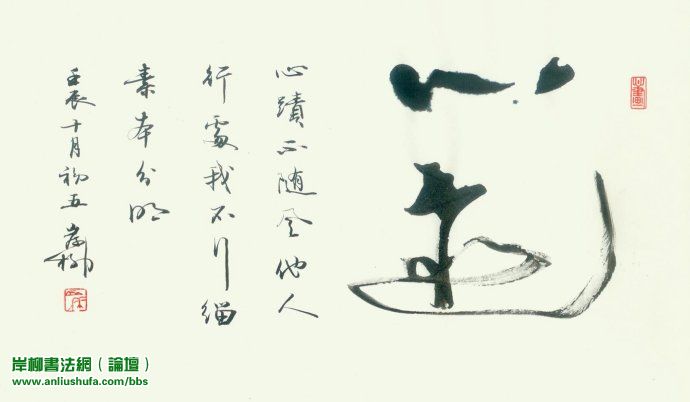 心蹟不随风他人
行處我不行緇
素本分明
壬辰十月初五 岸柳
岸柳書法網（論壇）
www.anliushufa.com/bbs